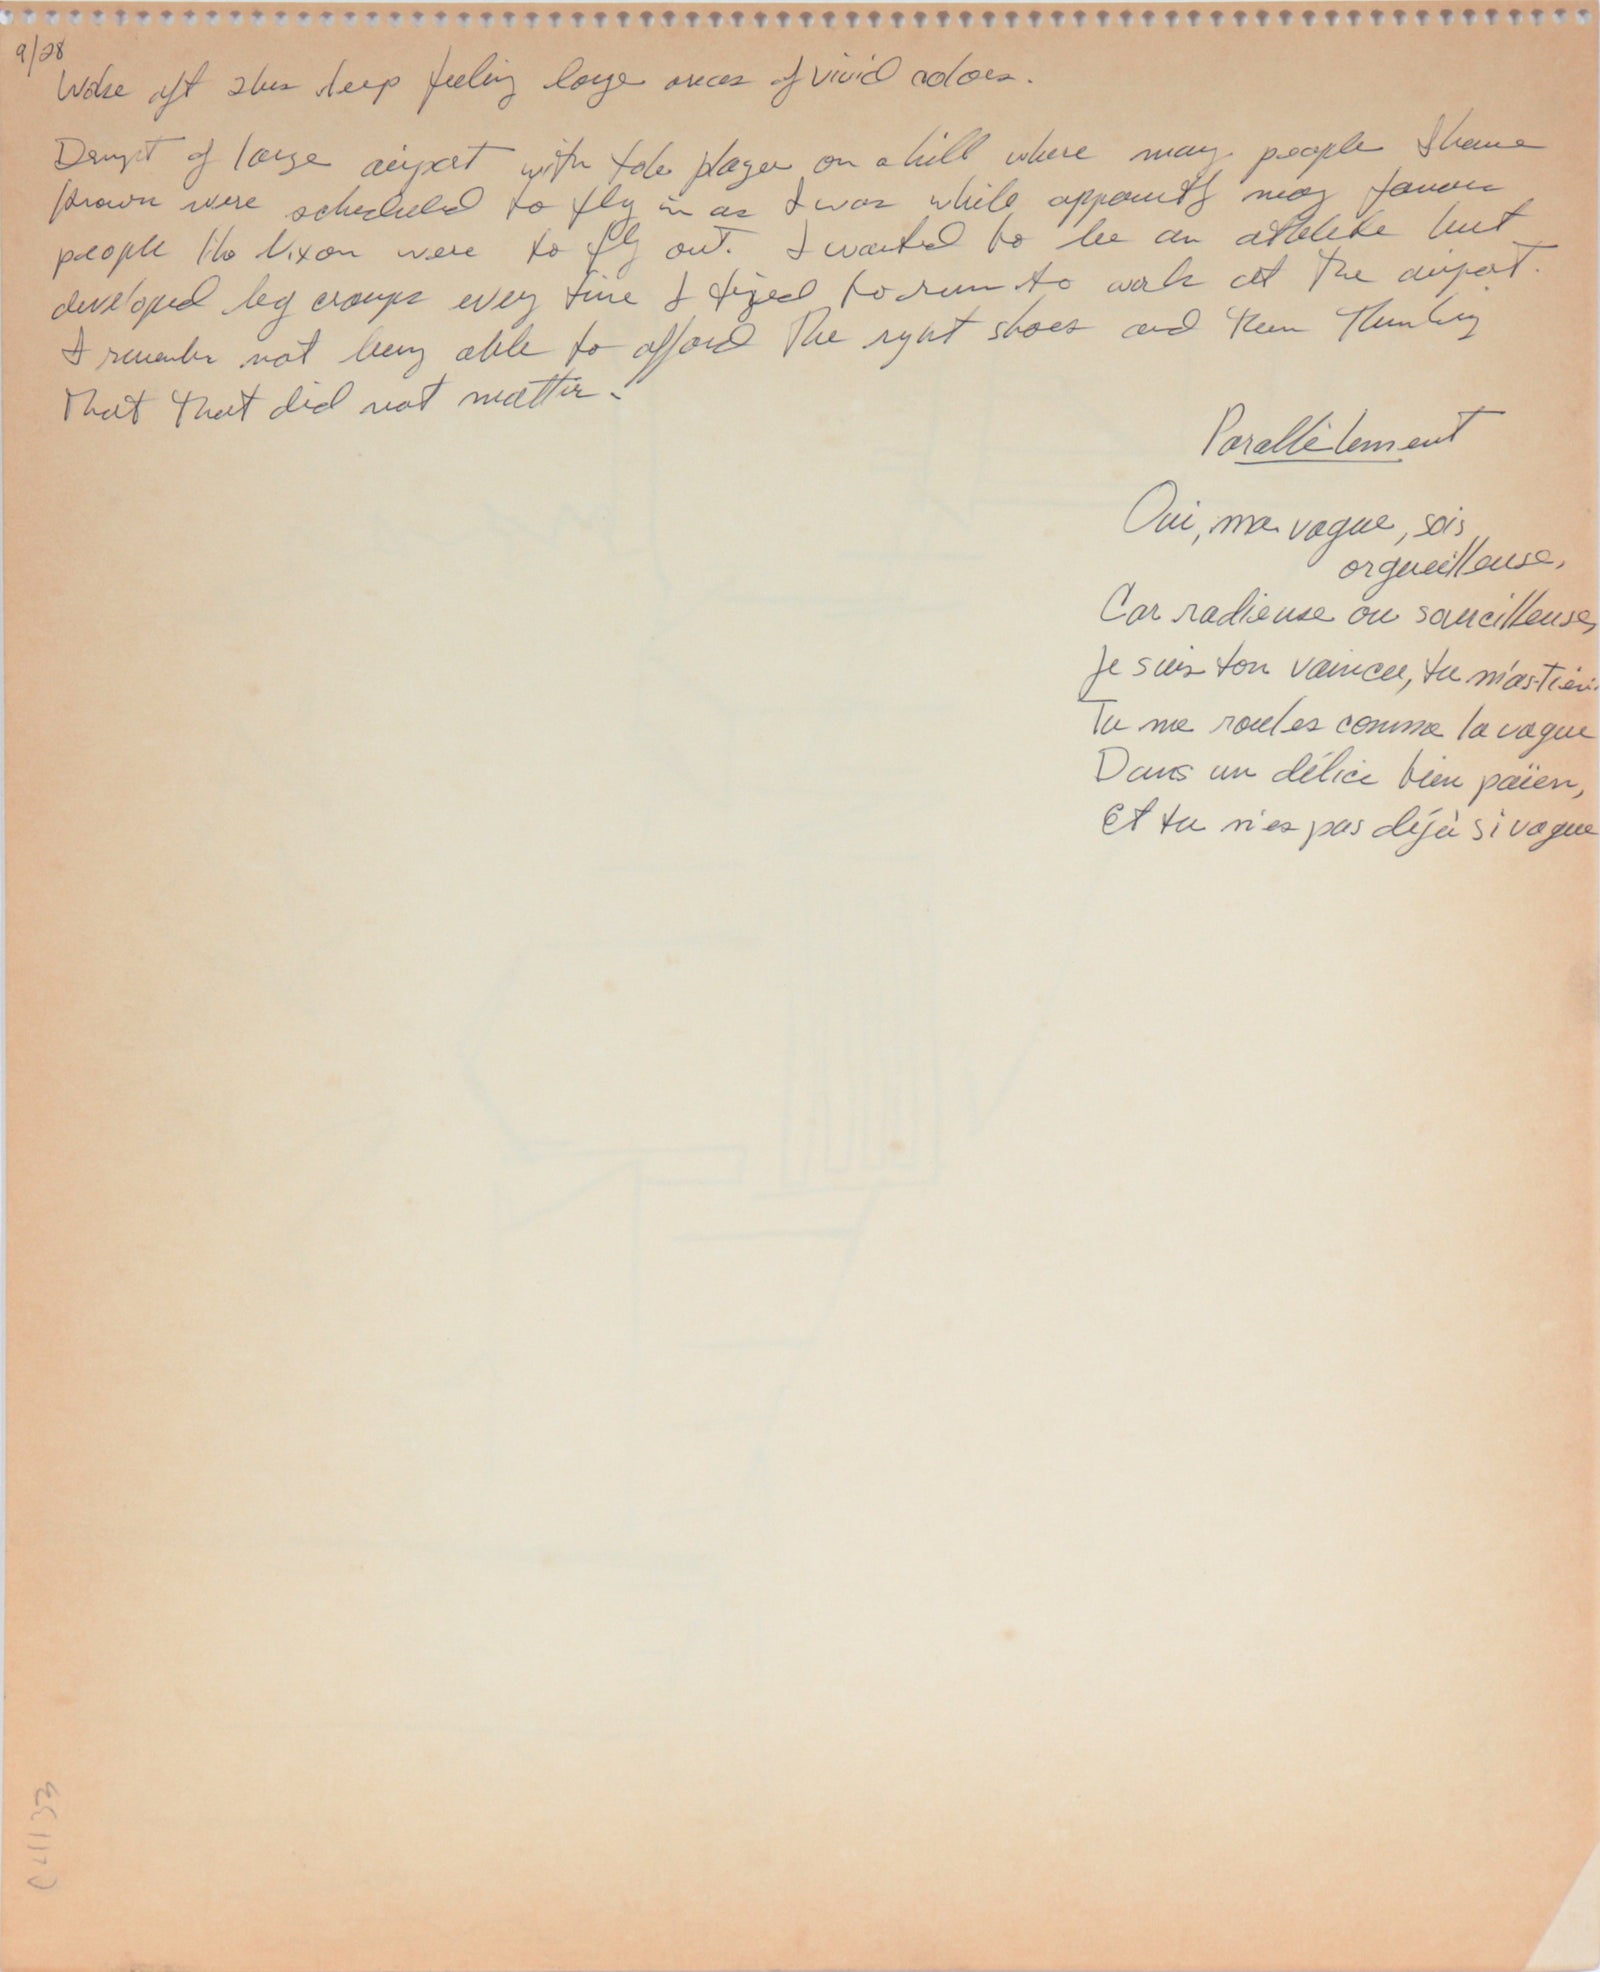 9/28
Woke aft 2 hrs sleep feeling large areas of vivid colors.
Dreamt of large airport with on a hill where many people I have
known were scheduled to fly in as I was while apparently many famous
people like Nixon were to fly out. I wanted to be an athlete but
developed leg cramps every time I tryed to run to work at the airport.
I remember not being able to afford the right shoes and then thinking
that that did not matter.
Parallèlement
Oui, ma vague, sois
orgueilleuse,
Car radieuse ou sourcilleuse,
Je suis ton vaincu, tu m'as tien:
Tu me roules comme la vague
Dans un délice bien païen,
Et tu n'es pas déjà si vague
C41133